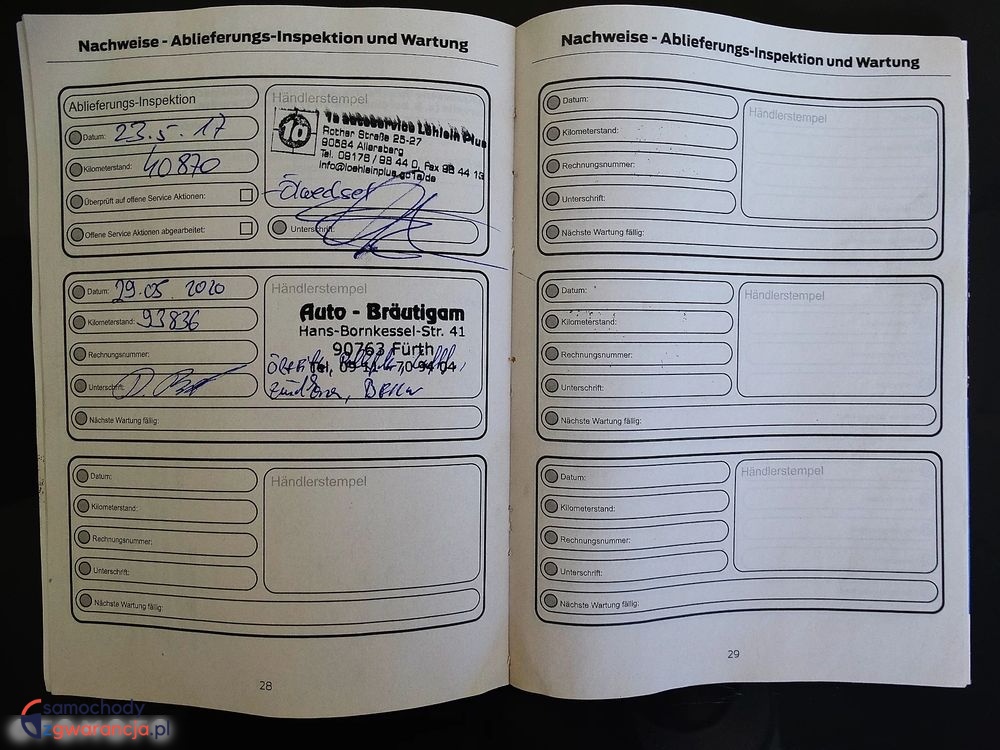 Nachweise - Ablieferungs-Inspektion und Wartung
Ablieferungs-Inspektion
Datum: 23.5.17
Kilometerstand: 40870
Überprüft auf offene Service Aktionen:
Offene Service Aktionen abgearbeitet:
Händlerstempel
1a autoservice Löhlein Plus
Rother Straße 25-27
90584 Allersberg
Tel. 09176 / 98 44 0, Fax 98 44 13
Ölwechsel
Unterschrift:
Datum: 29.05.2020
Kilometerstand: 93836
Rechnungsnummer:
Unterschrift:
Nächste Wartung fällig:
Händlerstempel
Auto - Bräutigam
Hans-Bornkessel-Str. 41
90763 Fürth
Tel. 09 11 - 70 94 04
Datum:
Kilometerstand:
Rechnungsnummer:
Unterschrift:
Nächste Wartung fällig:
Händlerstempel
28
Nachweise - Ablieferungs-Inspektion und Wartung
Datum:
Kilometerstand:
Rechnungsnummer:
Unterschrift:
Nächste Wartung fällig:
Händlerstempel
Datum:
Kilometerstand:
Rechnungsnummer:
Unterschrift:
Nächste Wartung fällig:
Händlerstempel
Datum:
Kilometerstand:
Rechnungsnummer:
Unterschrift:
Nächste Wartung fällig:
Händlerstempel
29
samochody
zgwarancja.pl